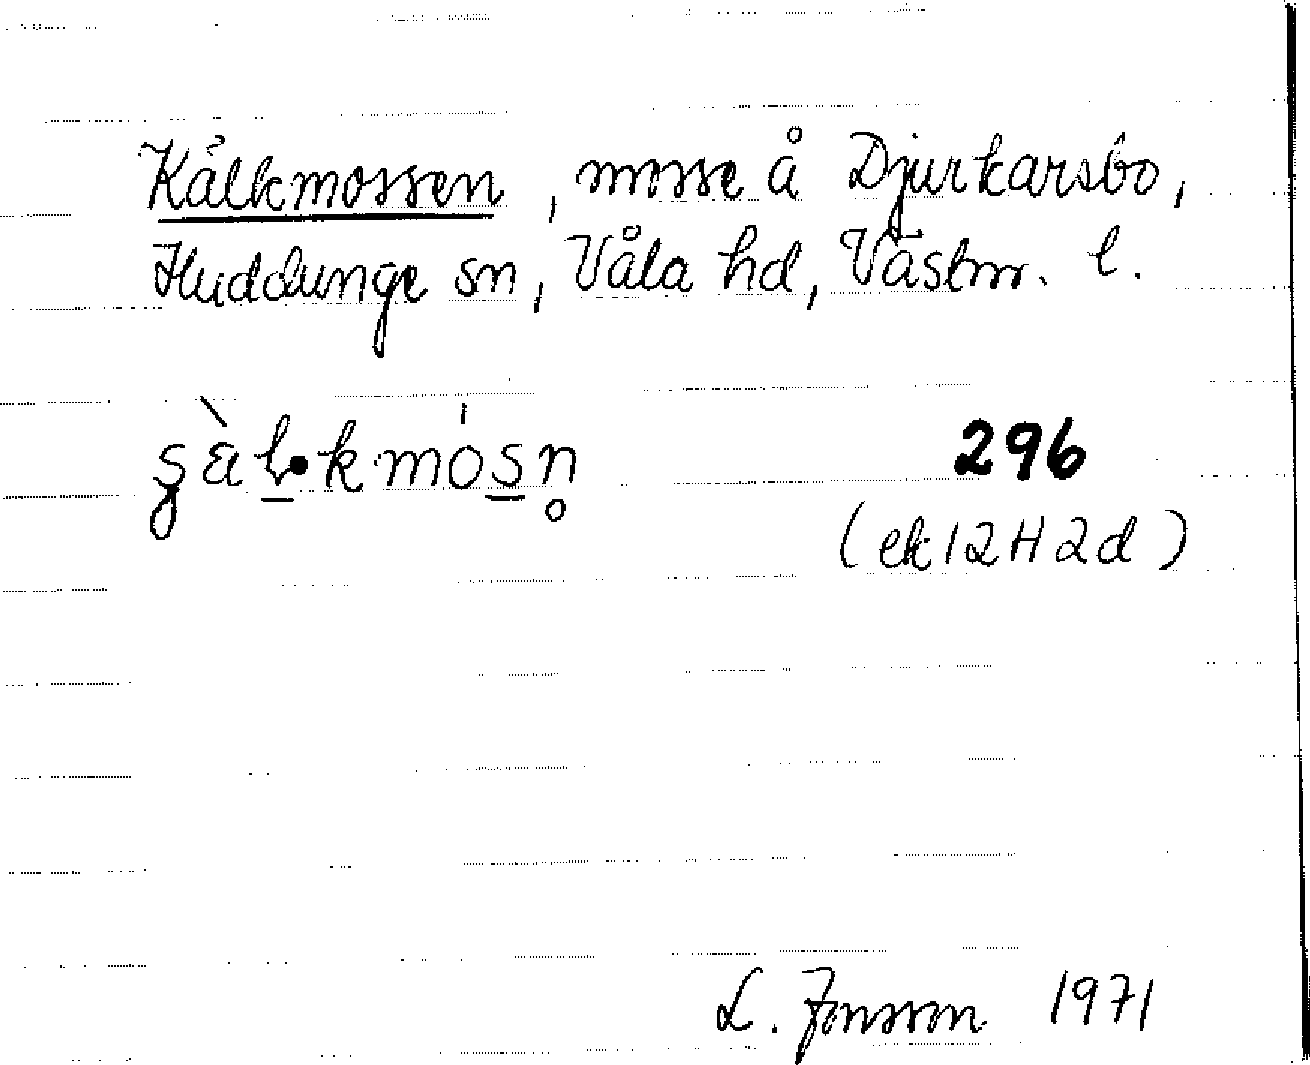 Kålkmossen, mosse å Djurkarsbo,
Huddunge sn, Våla hd, Västm. l.
296
(ek 12 H 2d)
L. Jonsson 1971